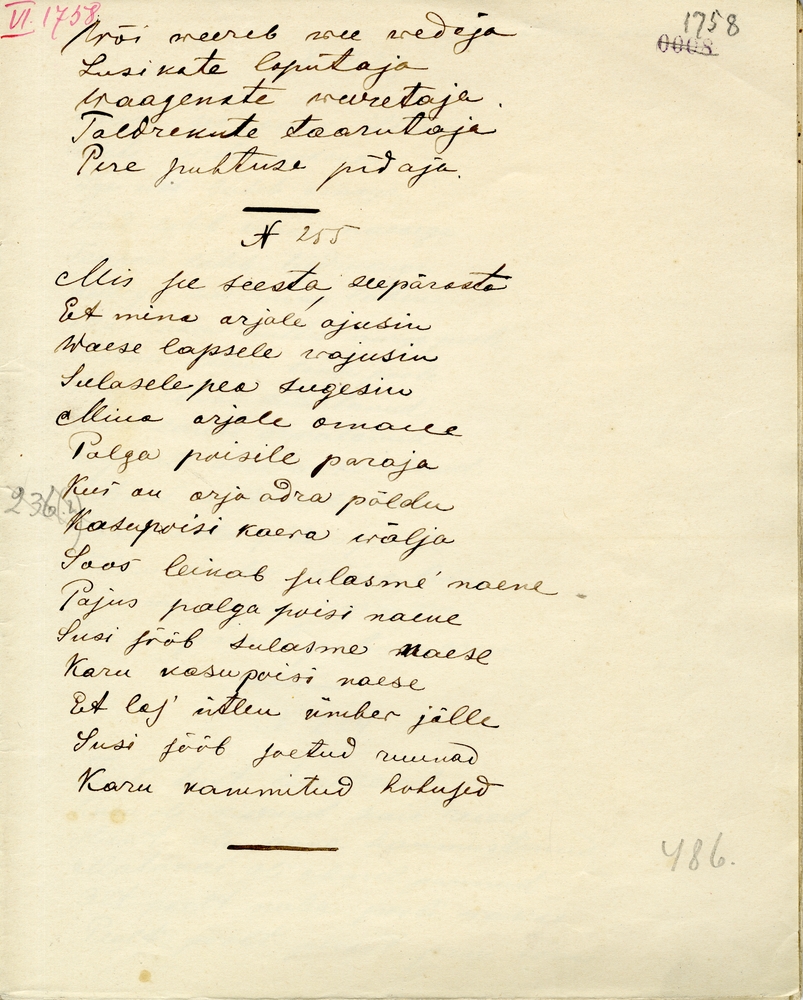 VI. 1758
1758
0008
Wõi weereb wee wedaja
Lusikate loputaja
Waagenate weeretaja.
Taldrekute taarutaja
Pere puhtuse pidaja.
N 255
Mis se seesta, seepärasta
Et mina orjalé ajusin
Waese lapsele wajusin
Sulasele pea sugesin
Mina orjale omane
Palga poisile paraja
Kus on orja adra põldu
Kasupoisi kaera wälja
Soos leikab sulasmé naene
Pajus palga poisi naene
Susi sööb sulasme naese
Karu kasupoisi naese
236(?)
Et las' ütlen ümber jälle
Susi sööb soetud ruunad
Karu kammitud hobused
486.